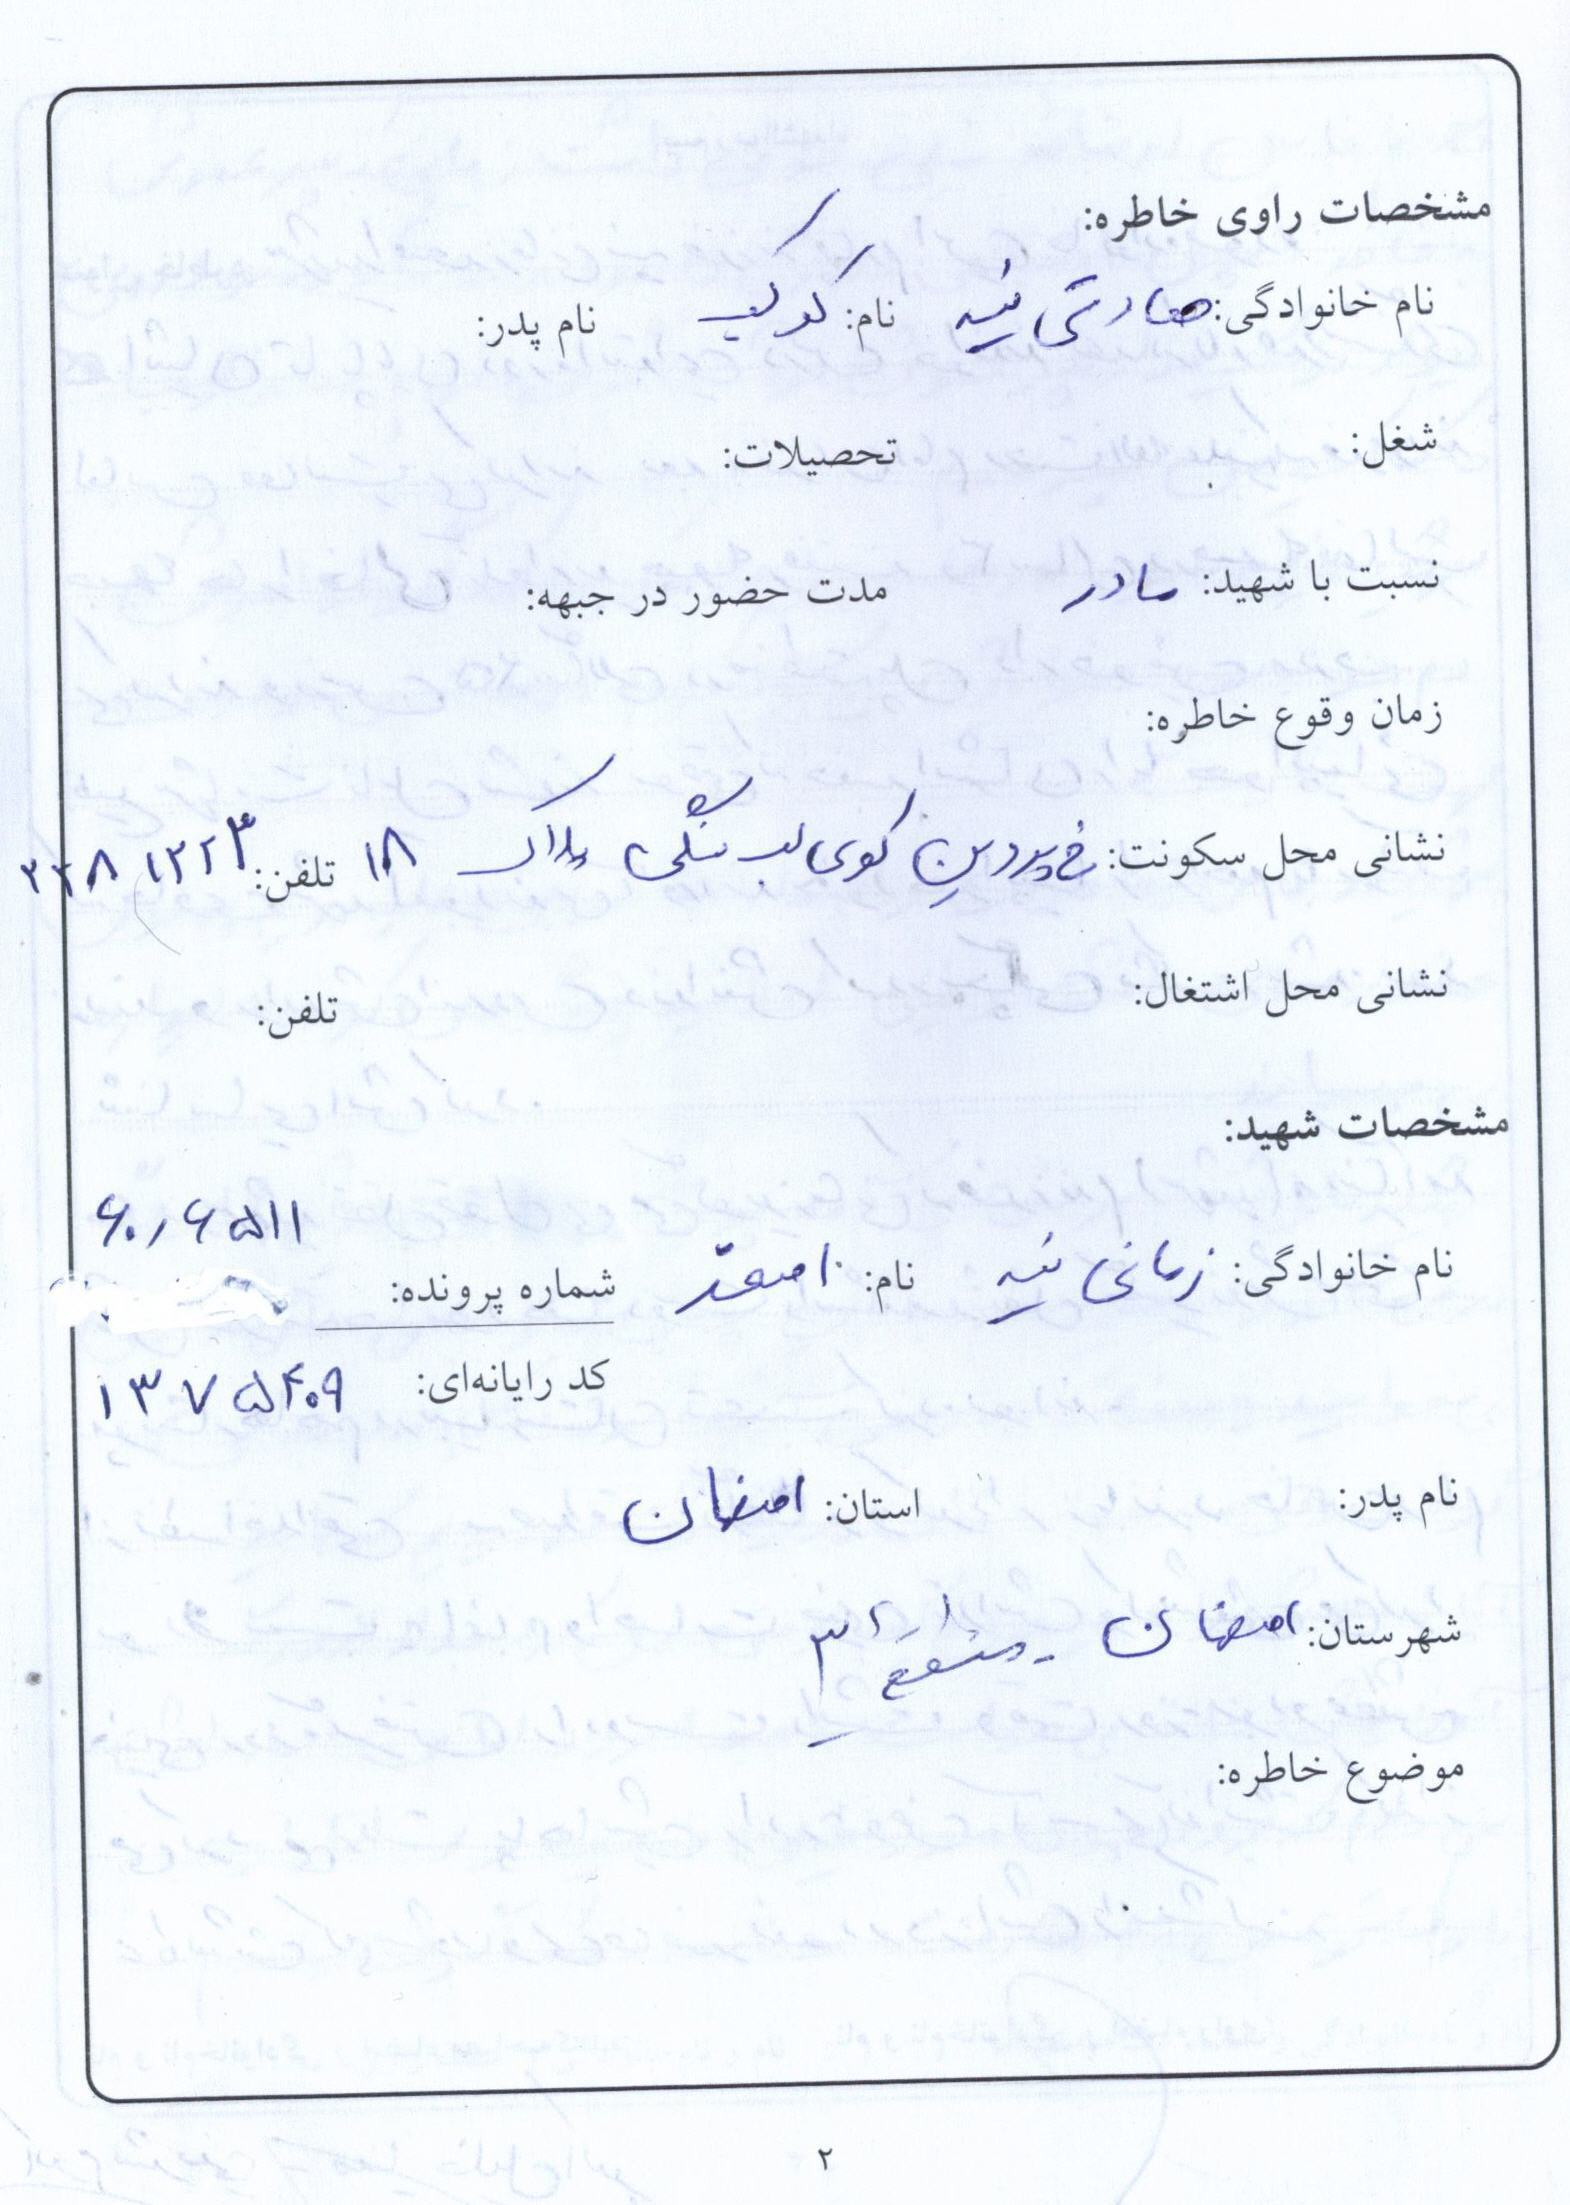 مشخصات راوی خاطره:
نام خانوادگی: صادقی نیه نام: کوکب نام پدر:
شغل: تحصیلات:
نسبت با شهید: مادر مدت حضور در جبهه:
زمان وقوع خاطره:
نشانی محل سکونت: خ پروین کوی پلاک ۱۸ تلفن: ۲۲۸۱۲۲۳
نشانی محل اشتغال: تلفن:
مشخصات شهید:
۶۰۶۵۱۱
نام خانوادگی: زمانی نیه نام: اصغر شماره پرونده:
کد رایانه‌ای: ۱۳۷۵۴۰۹
نام پدر: استان: اصفهان
شهرستان: اصفهان - منطقه ۳
موضوع خاطره:
۲